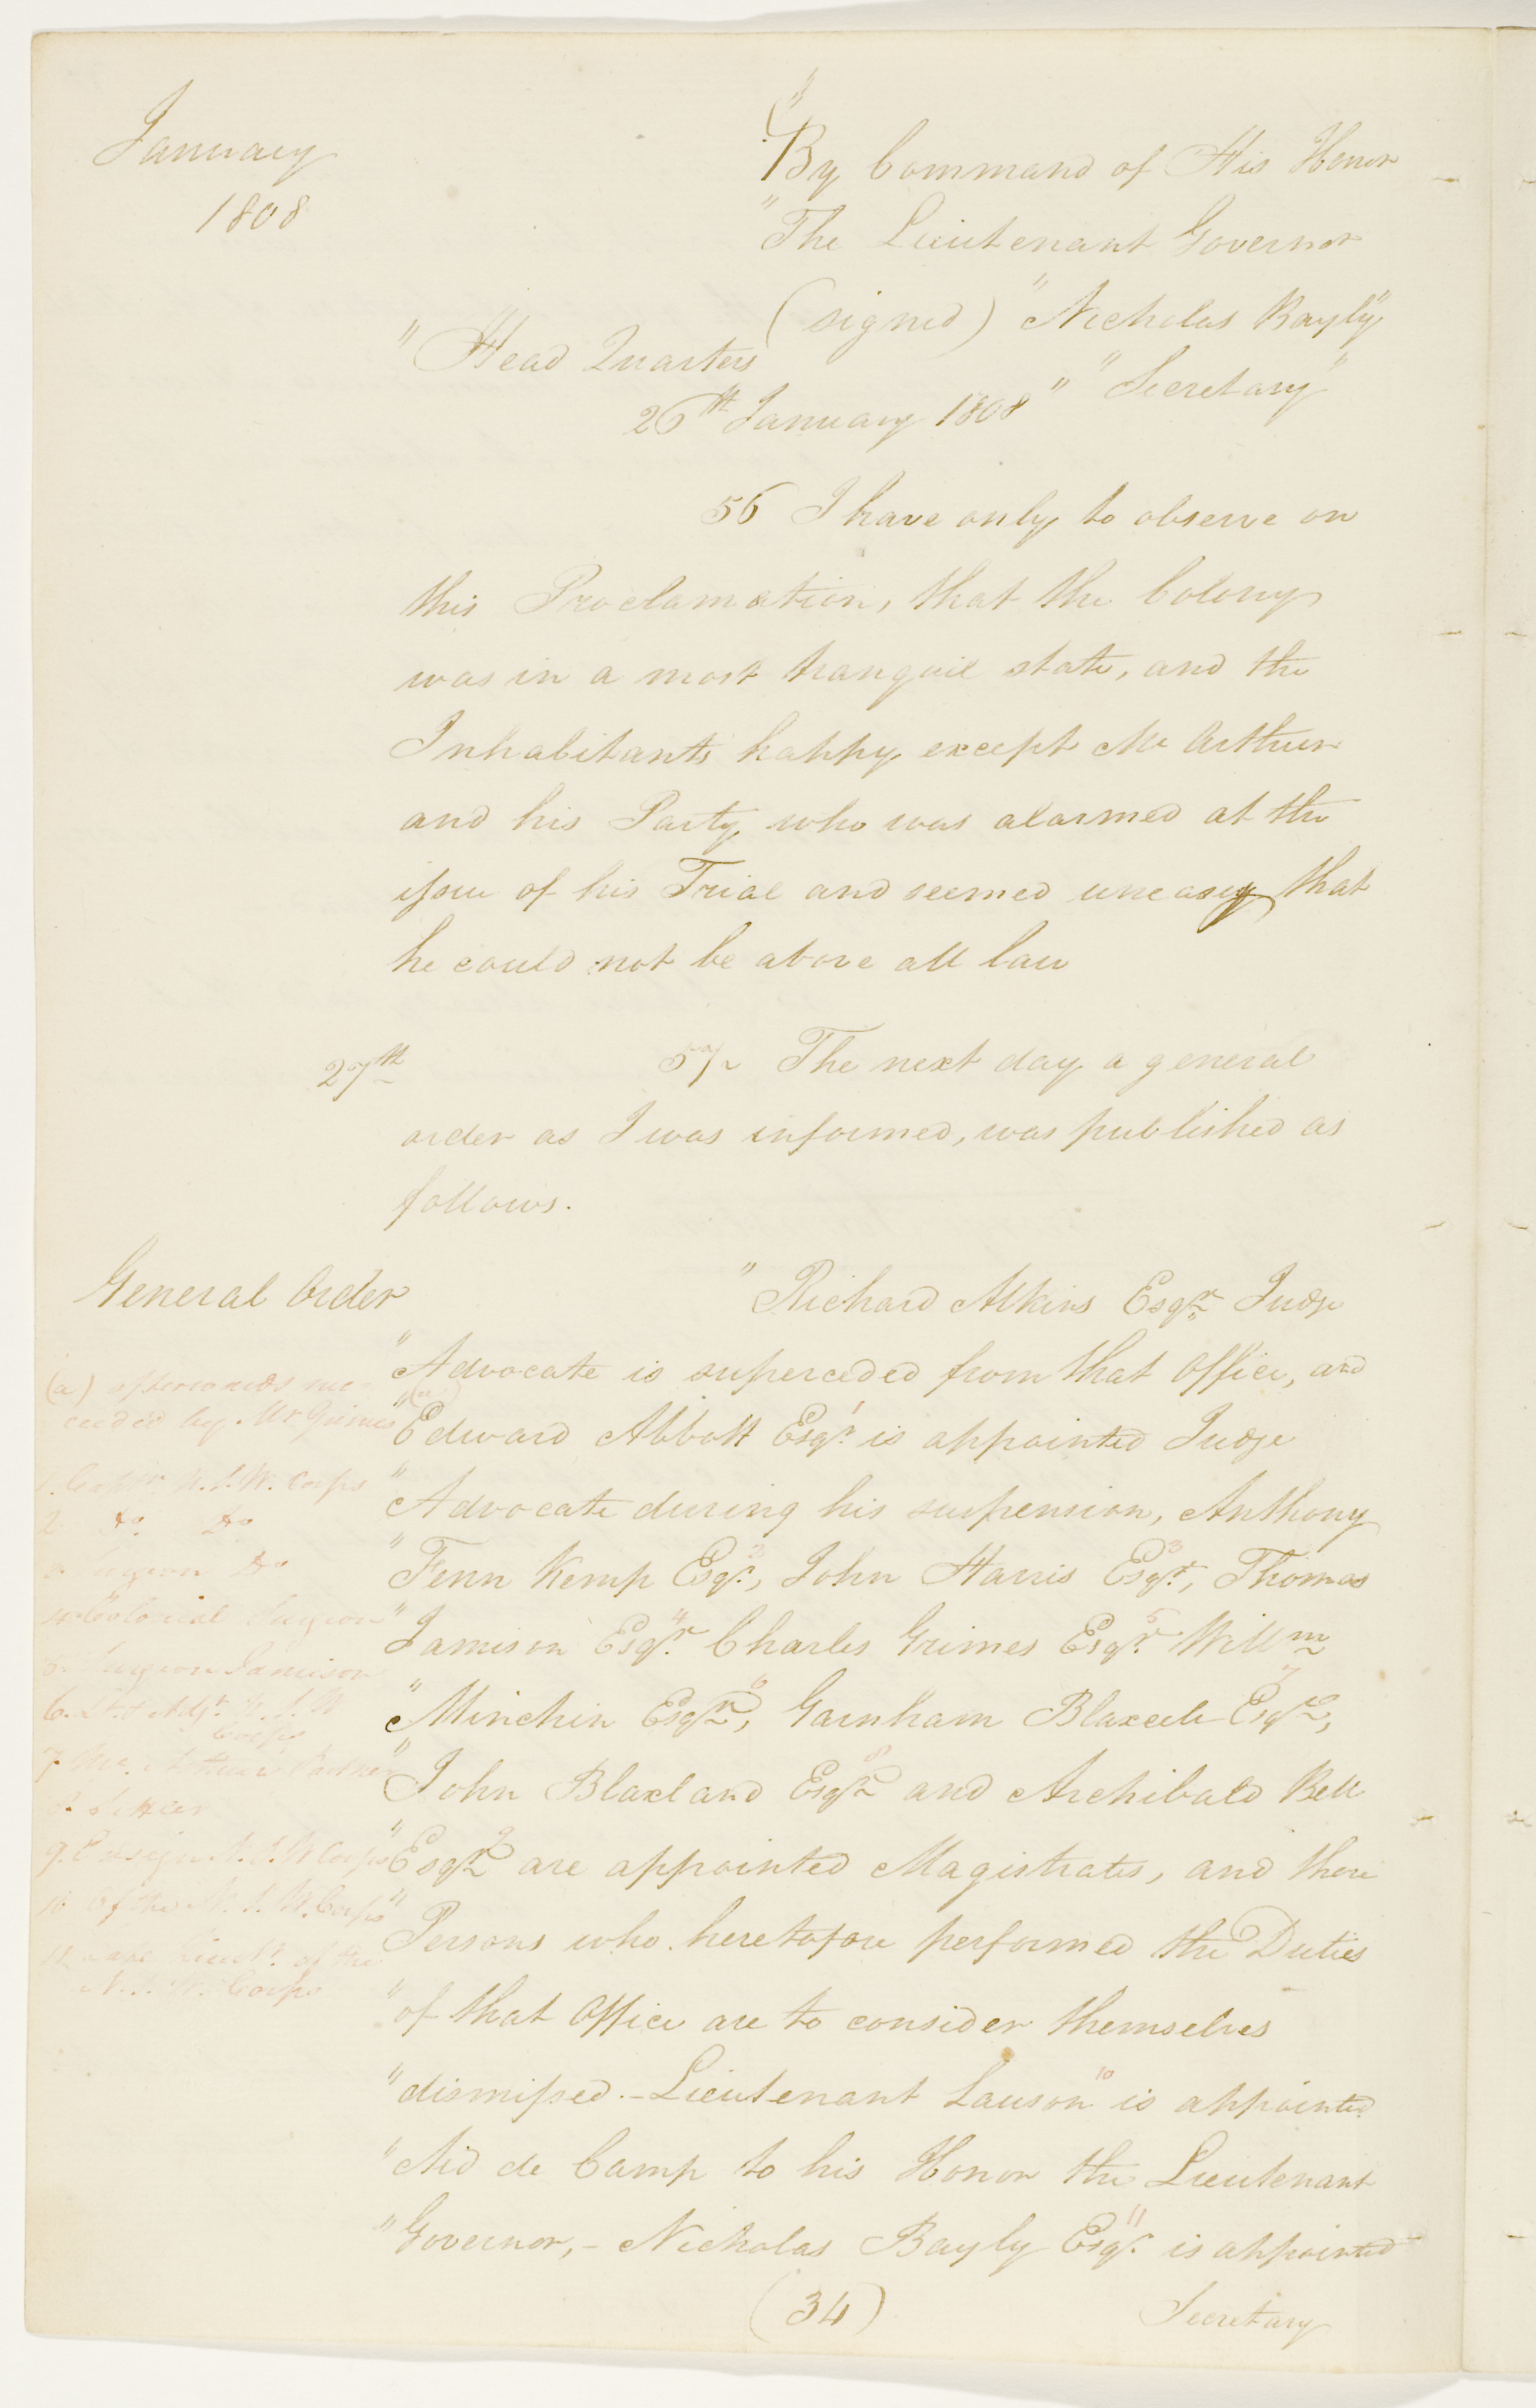 January
1808
"By Command of His Honor
"The Lieutenant Governor
(signed) "Nicholas Bayly"
"Secretary"
"Head Quarters
26th January 1808"
56 I have only to observe on
this Proclamation, that the Colony
was in a most tranquil state, and the
Inhabitants happy except McArthur
and his Party who was alarmed at the
issue of his Trial and seemed uneasy that
he could not be above all law
27th
57 The next day a general
order as I was informed, was published as
follows.
General Order
"Richard Atkins Esqr Judge
"Advocate is superceded from that office, and
"(a) Edward Abbott Esqr. 1 is appointed Judge
"Advocate during his suspension, Anthony
"Fenn Kemp Esqr. 2, John Harris Esqr. 3, Thomas
"Jamison Esqr. 4 Charles Grimes Esqr. 5 Willm
"Minchin Esqr 6, Garnham Blaxcele Esqre 7,
"John Blaxland Esqr 8 and Archibald Bell
"Esqr 9 are appointed Magistrates, and those
"Persons who heretofore performed the Duties
"of that office are to consider themselves
"dismissed. - Lieutenant Lawson 10 is appointed
"Aid de Camp to his Honor the Lieutenant
"Governor, - Nicholas Bayly Esqr. 11 is appointed
(34)
Secretary
(a) afterwards suc-
ceeded by Mr Grimes
1. Captn N.S.W. Corps
2 Do. Do
3. Surgeon Do
4. Colonial Surgeon
6. Lt. & Adjt. N.S.W
Corps
7. McArthur's Partner
8. Settler
9. Ensign N.S.W Corps
10 of the N.S.W. Corps
11 Lieutt. of the
N.S.W. Corps